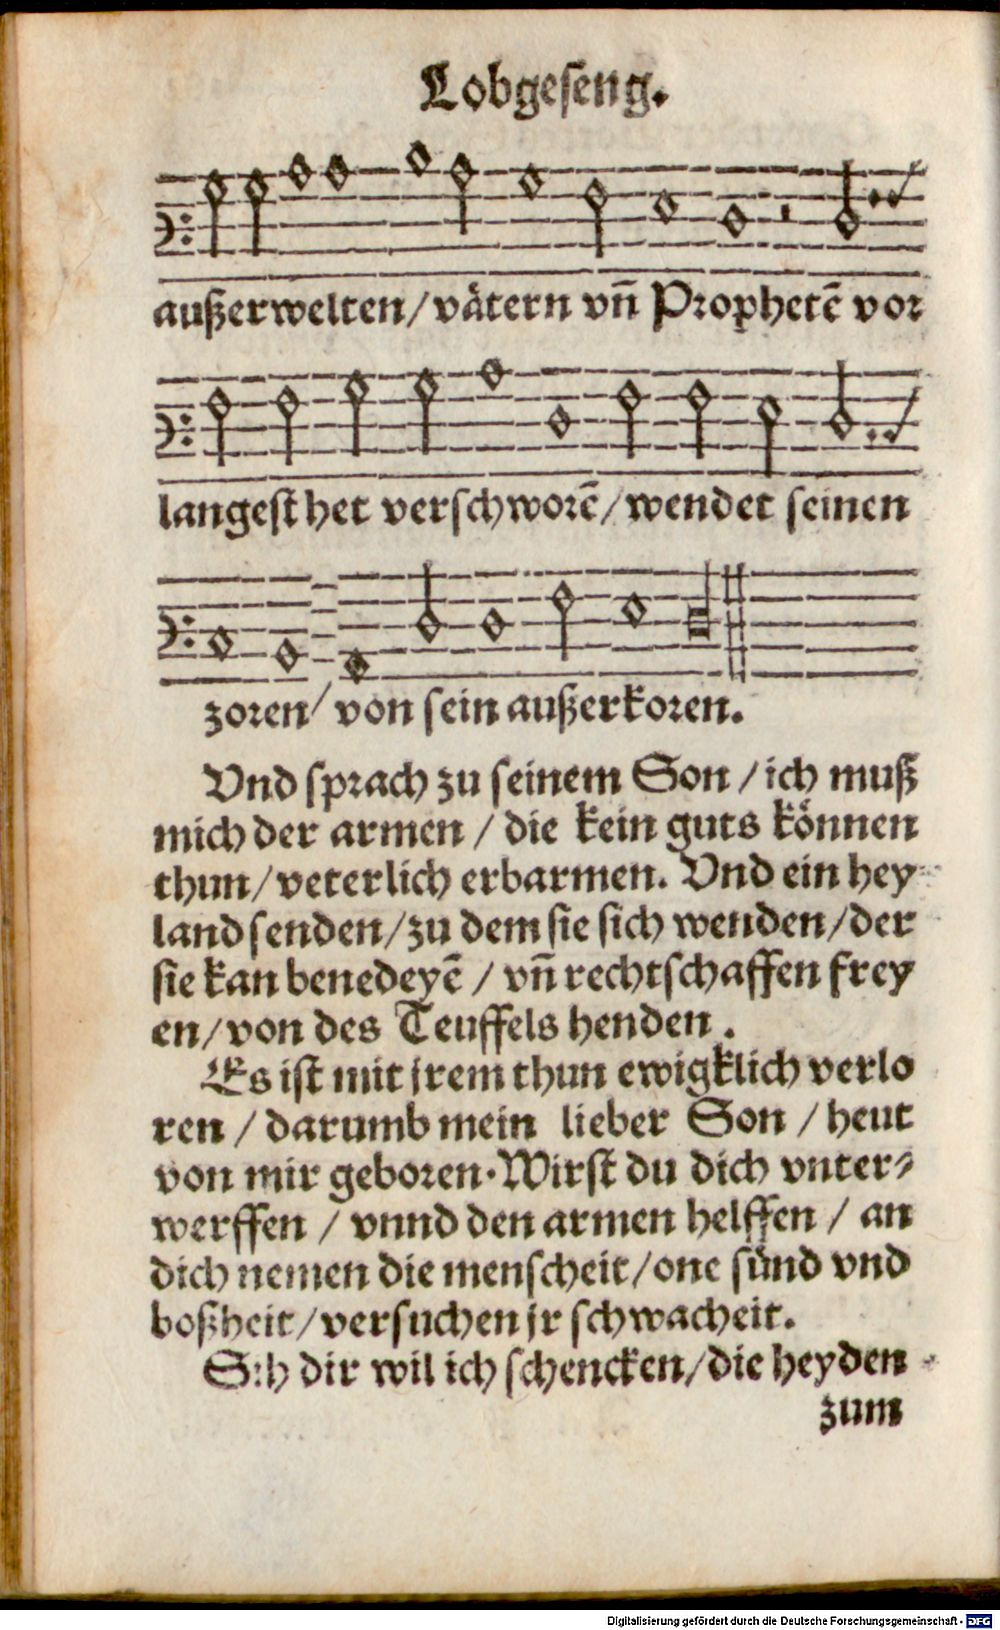 Lobgeseng.
außerwelten/vätern vn̄ Prophetē vor
langest het verschworē/wendet seinen
zoren/von sein außerkoren.
Vnd sprach zu seinem Son/ich muß
mich der armen/die kein guts können
thun/veterlich erbarmen. Vnd ein hey
land senden/zu dem sie sich wenden/der
sie kan benedeyē/vn̄ rechtschaffen frey
en/von des Teuffels henden.
Es ist mit jrem thun ewigklich verlo
ren/darumb mein lieber Son/heut
von mir geboren. Wirst du dich vnter-
werffen/vnnd den armen helffen/an
dich nemen die menscheit/one sünd vnd
boßheit/versuchen jr schwacheit.
S:h dir wil ich schencken/die heyden
zum
Digitalisierung gefördert durch die Deutsche Forschungsgemeinschaft - DFG